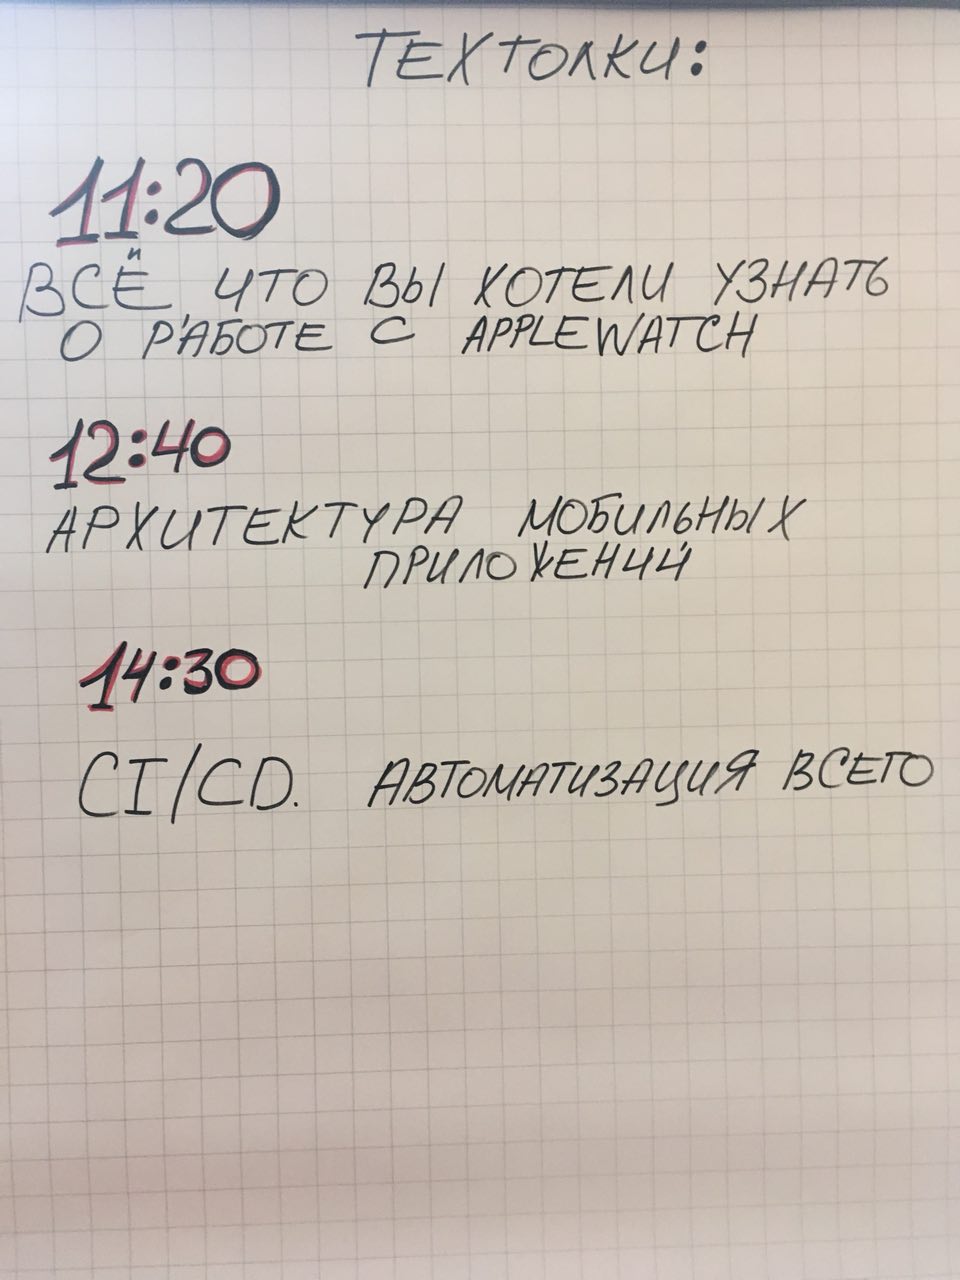 ТЕХТОЛКИ:
11:20
ВСЁ, ЧТО ВЫ ХОТЕЛИ УЗНАТЬ
О РАБОТЕ С APPLEWATCH
12:40
АРХИТЕКТУРА МОБИЛЬНЫХ
ПРИЛОЖЕНИЙ
14:30
CI/CD. АВТОМАТИЗАЦИЯ ВСЕГО